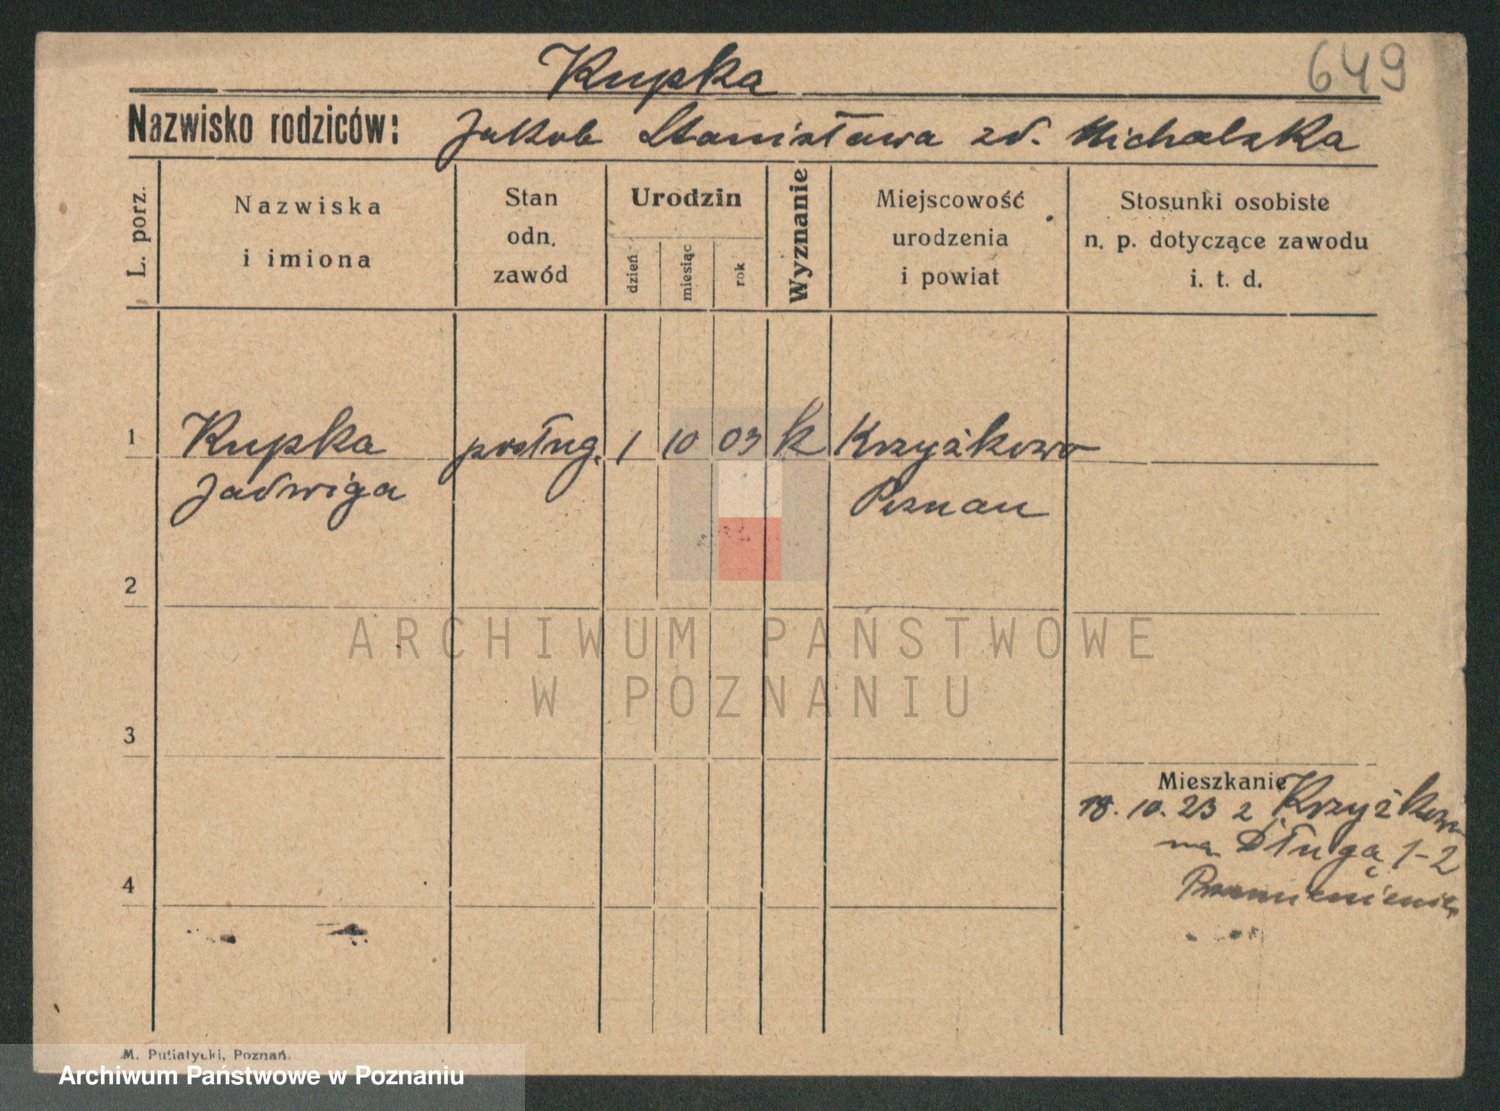 Kupka
649
Nazwisko rodziców: Jakob Stanisława zd. Michalska
L. porz.
Nazwiska
i imiona
Stan
odn.
zawód
Urodzin
dzień
miesiąc
rok
Wyznanie
Miejscowość
urodzenia
i powiat
Stosunki osobiste
n. p. dotyczące zawodu
i. t. d.
1 Kupka posług. 1 10 03 k Krzyżkowo
Jadwiga Poznan
2
ARCHIWUM PAŃSTWOWE
W POZNANIU
3
Mieszkanie
18. 10. 23 z Krzyżkowa
na Długą 1-2
4
M. Putiatycki, Poznań.
Archiwum Państwowe w Poznaniu